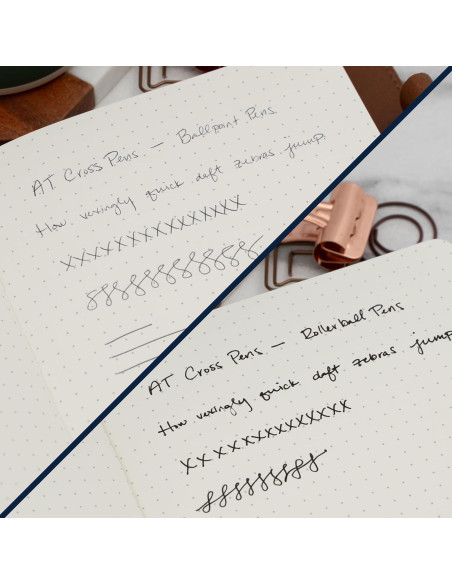 AT Cross Pens — Ballpoint Pens
How vexingly quick daft zebras jump.
XXXXXXXXXXXXXXX
AT Cross Pens — Rollerball Pens
How vexingly quick daft zebras jump
XXXXXXXXXXXXX